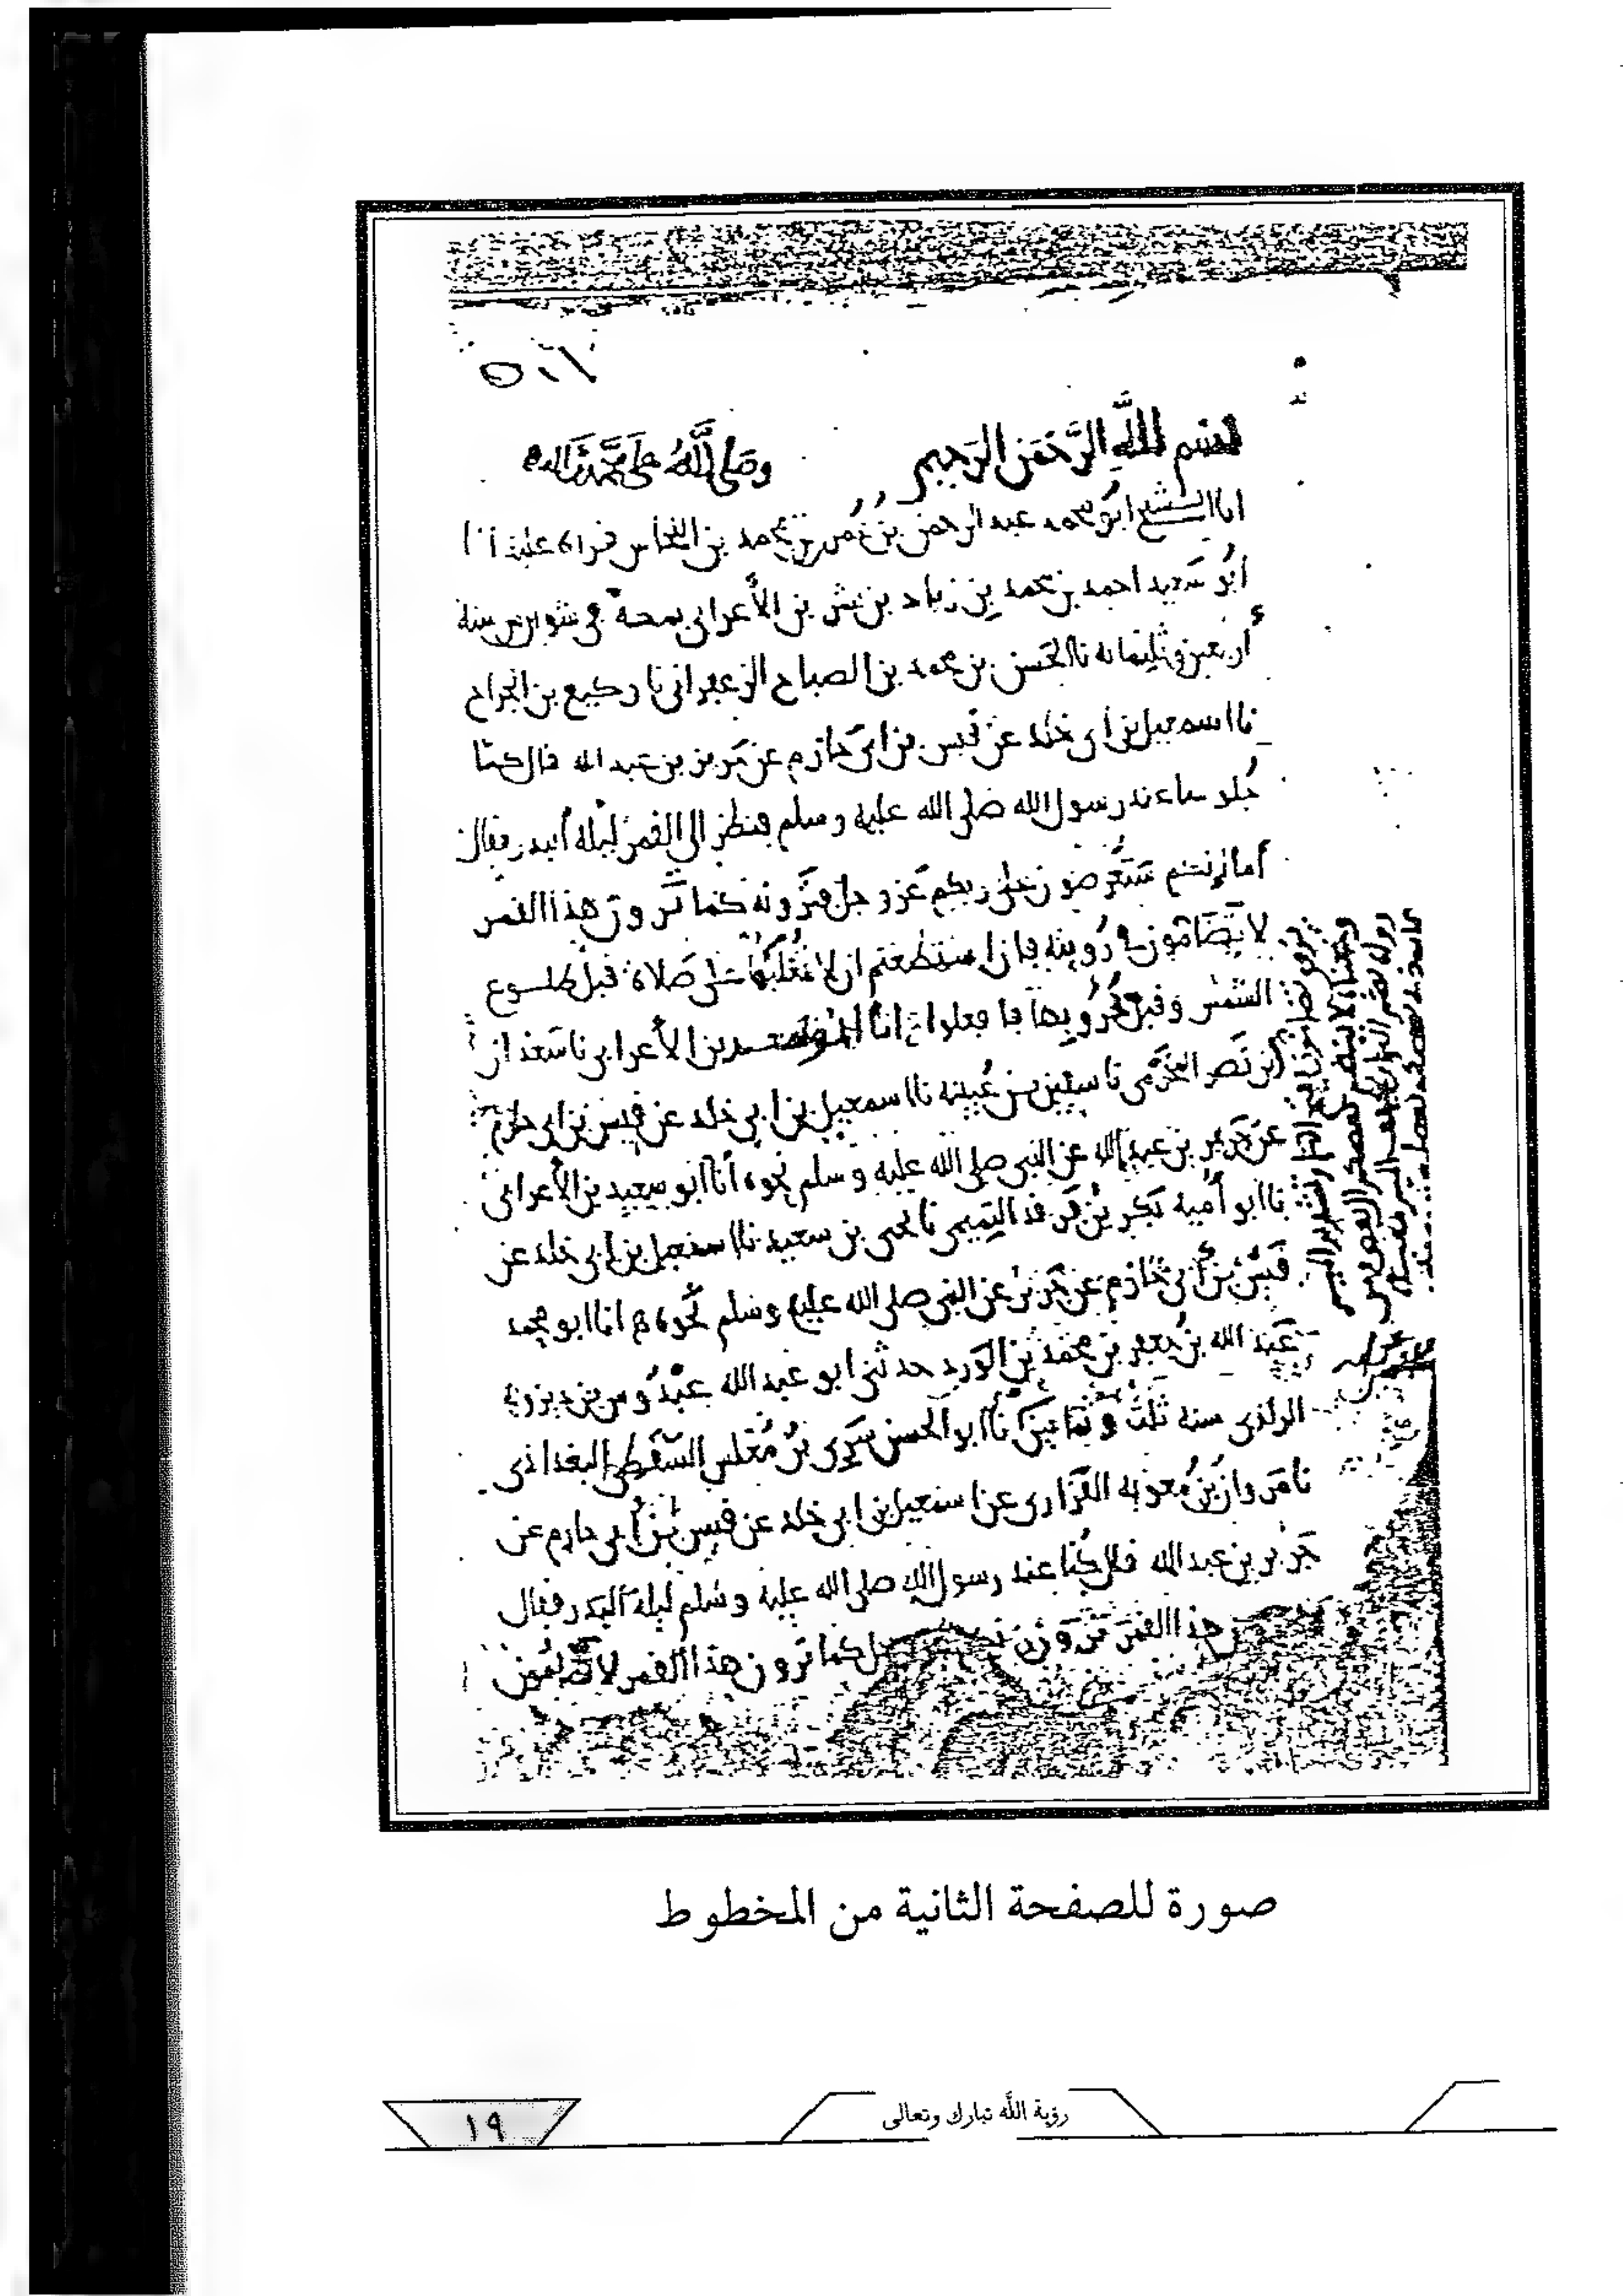 بسم الله الرَّحْمَن الرَحِيم وصَلى اللَّهُ على محمد واله
انا الشيخ ابو محمد عبد الرحمن بن عُمر بن محمد بن النحاس قراة عليه
أبُو سَعيد احمد بن محمد بن زياد بن بشر بن الأعرابي بمكة في سنة
أربعين وثلثمائه نا الحسن بن محمد بن الصباح الزعفراني نا وكيع بن الجراح
نا اسمعيل بن أبي خلد عن قيس بن ابي حازم عن جَرير بن عبد الله قال كنا
جُلوسا عند رسول الله صلى الله عليه وسلم فنظر الى القمر ليلة البدر فقال
أما إنكم ستُعرضون على ربكم عَز وجل فترونه كما تَرون هذا القمر
لا تضَامون في رُويته فإن استطعتم ان لا تُغلبوا على صَلاة قبل طلوع
الشمس وقبل غُرُوبها فافعلوا انا بن الأعرابي نا سَعدان
بن نَصر المُخَرمي نا سفين بن عُيينه نا اسمعيل بن ابي خلد عن قيس بن ابي حازم
عن جَرير بن عبد الله عن النبي صلى الله عليه وسلم نحوه أنا ابو سعيد بن الأعرابي
نا ابو أميه بكر بن فَرقد التميمي نا يحيى بن سعيد نا اسمعيل بن ابي خلد عن
قيس بن أبي حَازم عن جَرير عن النبي صلى الله عليه وسلم نحوه انا ابو محمد
عَبد الله بن جعفر بن محمد بن الوَرد حدثني ابو عبد الله عَبدُوس بن ديزويه
الرازي سنه ثلث وثمانين نا أبو الحسن سَري بن مُغلس السقطي البغداذي
نا مَروان بن مُعويه الفَزاري عن اسمعيل بن ابي خلد عن قيس بن أبي حازم عن
جَرير بن عبد الله قال كنا عند رسول الله صلى الله عليه وسلم ليلة البَدر فقال
هذا القمر تَرَون كما ترون هذا القمر لا تضَامُون
صورة للصفحة الثانية من المخطوط
رؤية الله تبارك وتعالى
١٩